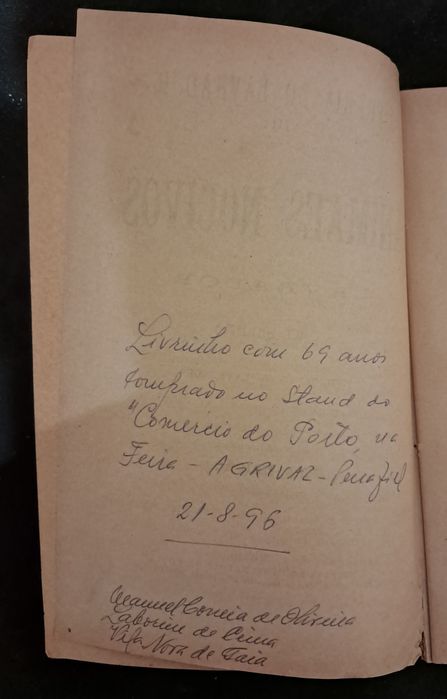 Livrinho com 69 anos
comprado no Stand do
"Comercio do Porto, na
Feira - AGRIVAL - Penafiel
21-8-96
Manuel Correia de Oliveira
Laborim de Cima
Vila Nova de Gaia